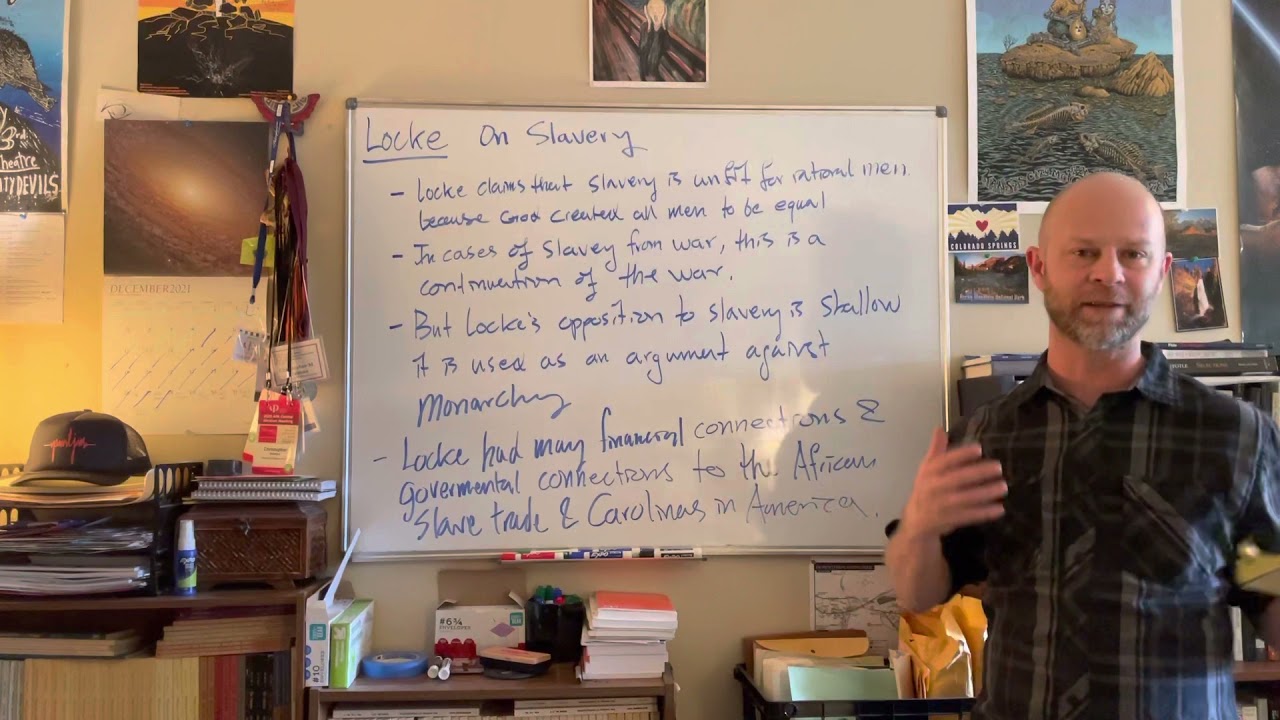 Locke On Slavery
- Locke claims that slavery is unfit for rational men
because God created all men to be equal
- In cases of slavery from war, this is a
continuation of the war.
- But Locke's opposition to slavery is shallow
it is used as an argument against
Monarchy
- Locke had may financial connections &
govermental connections to the African
slave trade & Carolinas in America.
DECEMBER 2021
theatre
DEVILS
COLORADO SPRINGS
#6¾
ENVELOPES
#10